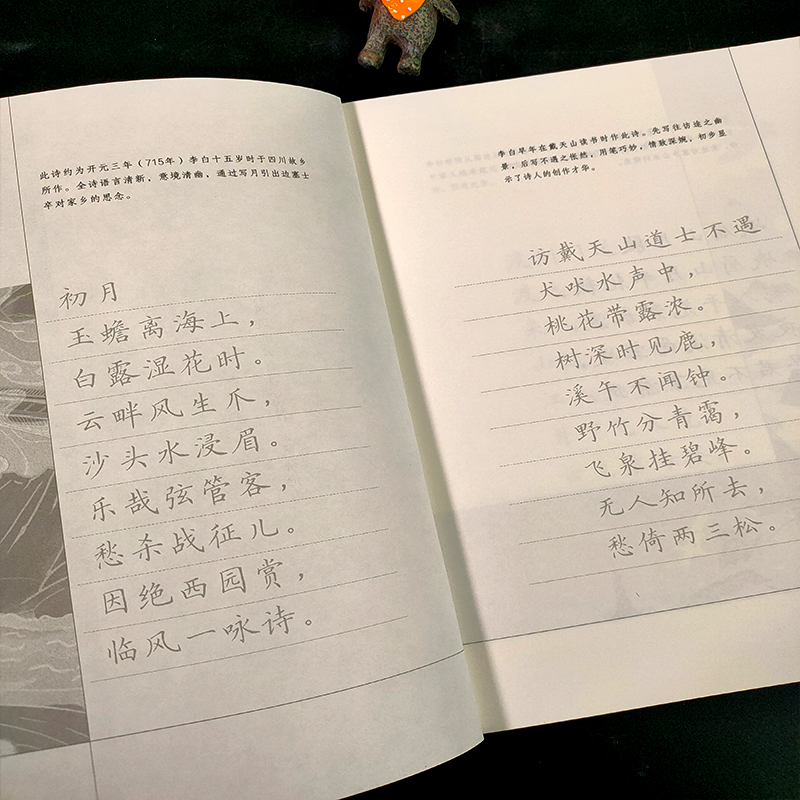 此诗约为开元三年（715年）李白十五岁时于四川故乡
所作。全诗语言清新，意境清幽、通过写月引出边塞士
卒对家乡的思念。
初月
玉蟾离海上，
白露湿花时。
云畔风生爪，
沙头水浸眉。
乐哉弦管客，
愁杀战征儿。
因绝西园赏，
临风一咏诗。
李白早年在戴天山读书时作此诗。先写往访途之幽
景，后写不遇之怅然，用笔巧妙，情致深婉，初步显
示了诗人的创作才华。
访戴天山道士不遇
犬吠水声中，
桃花带露浓。
树深时见鹿，
溪午不闻钟。
野竹分青霭，
飞泉挂碧峰。
无人知所去，
愁倚两三松。